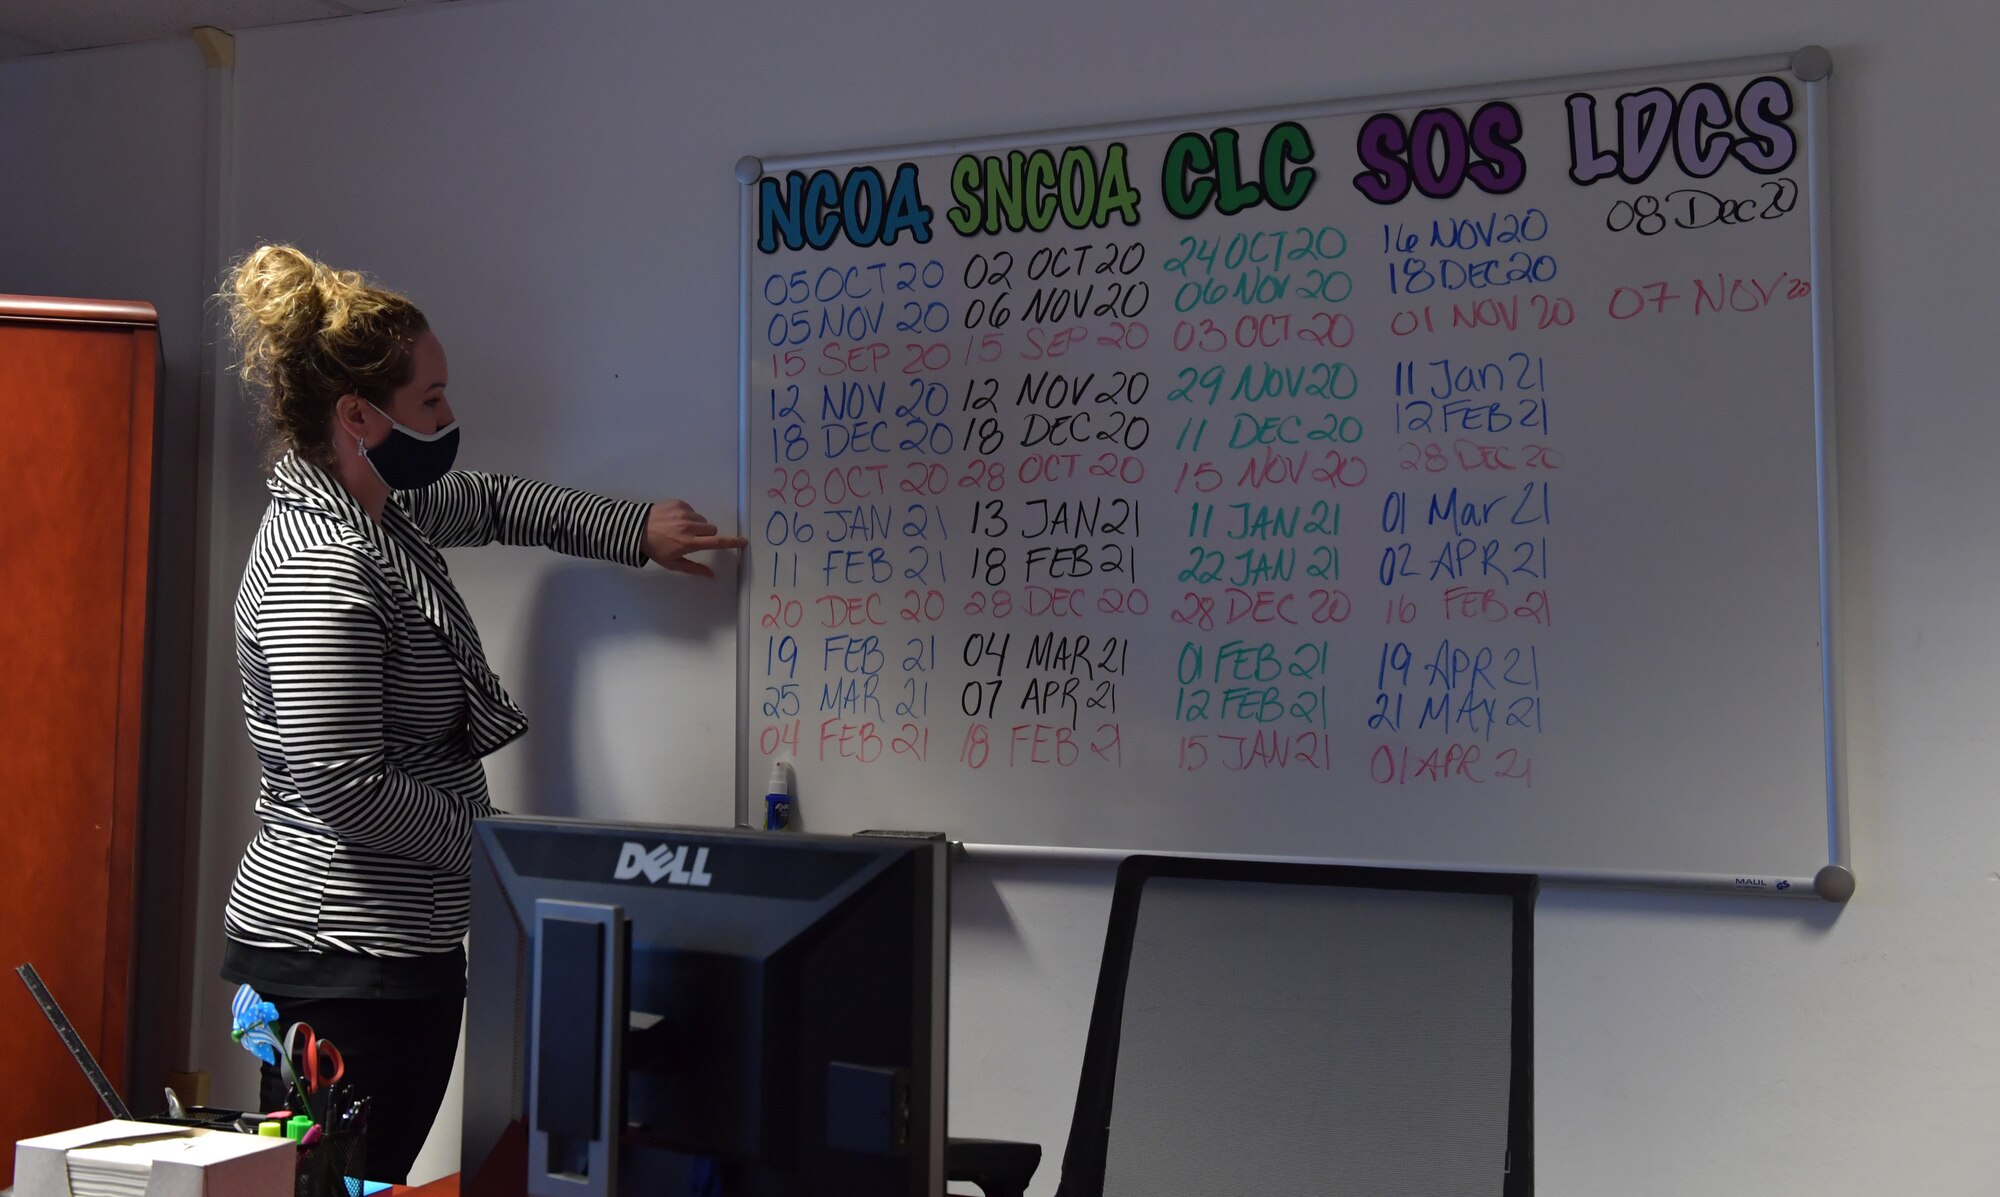 NCOA SNCOA CLC SOS LDCS
05 OCT 20 02 OCT 20 24 OCT 20 16 NOV 20 08 Dec 20
05 NOV 20 06 NOV 20 06 NOV 20 18 DEC 20
15 SEP 20 15 SEP 20 03 OCT 20 01 NOV 20 07 NOV 20
12 NOV 20 12 NOV 20 29 NOV 20 11 Jan 21
18 DEC 20 18 DEC 20 11 DEC 20 12 FEB 21
28 OCT 20 28 OCT 20 15 NOV 20 28 DEC 20
06 JAN 21 13 JAN 21 11 JAN 21 01 Mar 21
11 FEB 21 18 FEB 21 22 JAN 21 02 APR 21
20 DEC 20 28 DEC 20 28 DEC 20 16 FEB 21
19 FEB 21 04 MAR 21 01 FEB 21 19 APR 21
25 MAR 21 07 APR 21 12 FEB 21 21 MAY 21
04 FEB 21 18 FEB 21 15 JAN 21 01 APR 21
DELL
MAUL